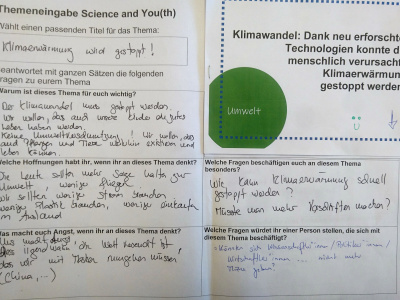 Themeneingabe Science and You(th)
Wählt einen passenden Titel für das Thema:
Klimaerwärmung wird gestoppt!
beantwortet mit ganzen Sätze die folgenden
Fragen zu eurem Thema
Warum ist dieses Thema für euch wichtig?
Der Klimawandel muss gestoppt werden.
Wir wollen, dass auch unsere Kinder ein gutes
Leben haben werden.
Keine Umweltverschmutzung! Wir wollen, dass
auch Pflanzen und Tiere weiterhin existieren und
leben können.
Welche Hoffnungen habt ihr, wenn ihr an dieses Thema denkt?
Die Leute sollten mehr Sorge halten zur
Umwelt, weniger fliegen
Wir sollten weniger Strom brauchen
weniger Plastik brauchen, weniger einkaufen
im Ausland
Was macht euch Angst, wenn ihr an dieses Thema denkt?
Uns macht Angst,
dass irgendwann die Welt verseucht ist,
dass wir mit Masken rumgehen müssen
(China,...)
Klimawandel: Dank neu erforschte
Technologien konnte d
menschlich verursach
Klimaerwärmun
gestoppt werden
Umwelt
Welche Fragen beschäftigen euch an diesem Thema
besonders?
Wie kann Klimaerwärmung schnell
gestoppt werden?
Müsste man mehr Vorschriften machen?
Welche Fragen würdet ihr einer Person stellen, die sich mit
diesem Thema beschäftigt?
Könnten sich Wissenschaftler*innen / Politiker*innen /
Wirtschaftler*innen ... nicht mehr
Mühe geben?